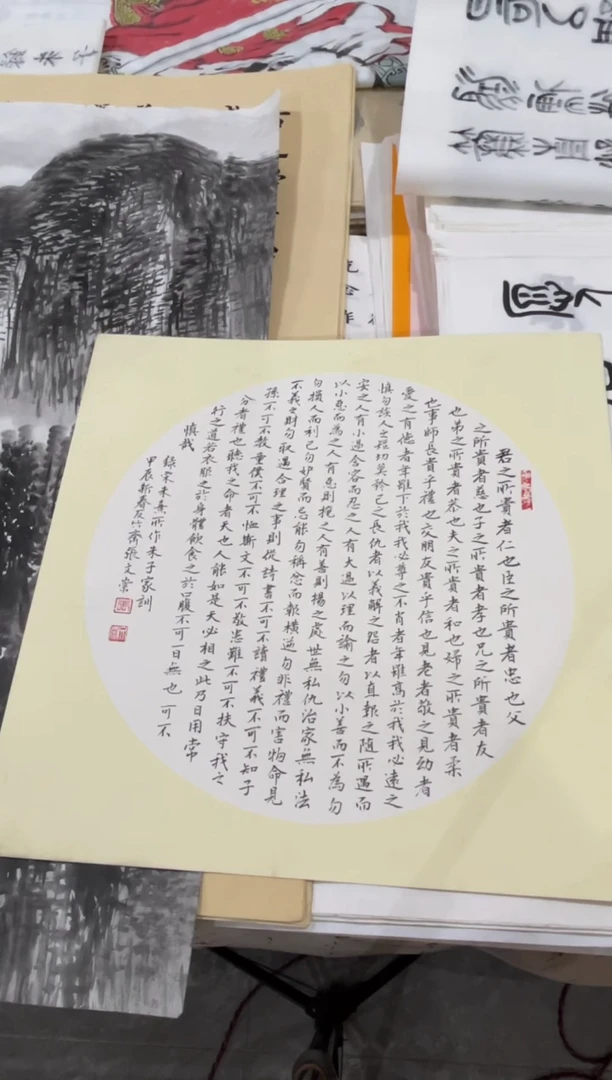 君之所貴者仁也臣之所貴者忠也父
之所貴者慈也子之所貴者孝也兄之所貴者友
也弟之所貴者恭也夫之所貴者和也婦之所貴者柔
也事師長貴乎禮也交朋友貴乎信也見老者敬之見幼者
愛之有德者年雖下於我我必尊之不肖者年雖高於我我必遠之
慎勿談人之短切莫矜己之長仇者以義解之怨者以直報之隨所遇而
安之人有小過含容而忍之人有大過以理而諭之勿以小善而不為勿
以小惡而為之人有惡則掩之人有善則揚之處世無私仇治家無私法
勿損人而利己勿妒賢而忌能勿稱忿而報橫逆勿非禮而害物命見
不義之財勿取遇合理之事則從詩書不可不讀禮義不可不知子
孫不可不教童僕不可不恤斯文不可不敬患難不可不扶守我之
分者禮也聽我之命者天也人能如是天必相之此乃日用常
行之道若衣服之於身體飲食之於口腹不可一日無也可不
慎哉
錄宋朱熹所作朱子家訓
甲辰新春友竹齋張文